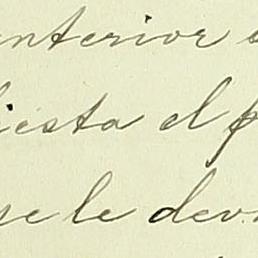 anterior
iesta el p
se le devo